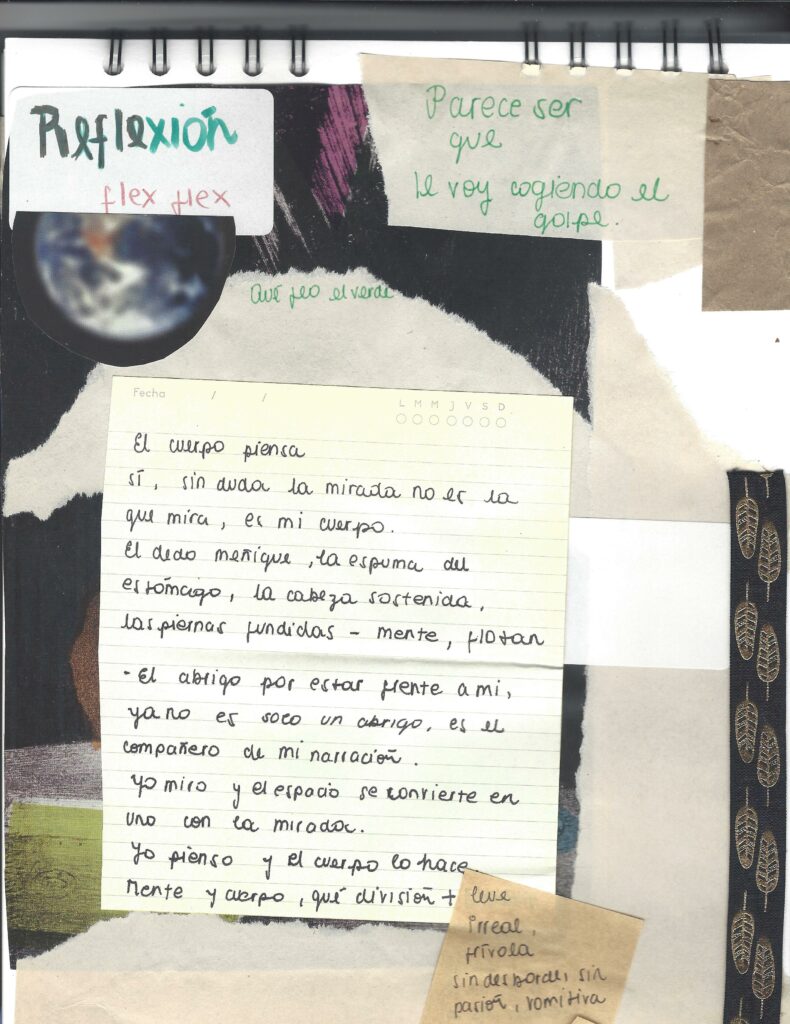 Reflexión
flex flex
Parece ser
que
le voy cogiendo el
golpe.
Qué feo el verde
Fecha / /
L M M J V S D
El cuerpo piensa
sí, sin duda la mirada no es la
que mira, es mi cuerpo.
El dedo meñique, la espuma del
estómago, la cabeza sostenida,
las piernas fundidas - mente, flotan
- El abrigo por estar frente a mi,
ya no es soco un abrigo, es el
compañero de mi narración.
Yo miro y el espacio se convierte en
uno con la mirada.
Yo pienso y el cuerpo lo hace.
Mente y cuerpo, qué división + leve
irreal,
frívola
sin desborde, sin
pasión, vomitiva